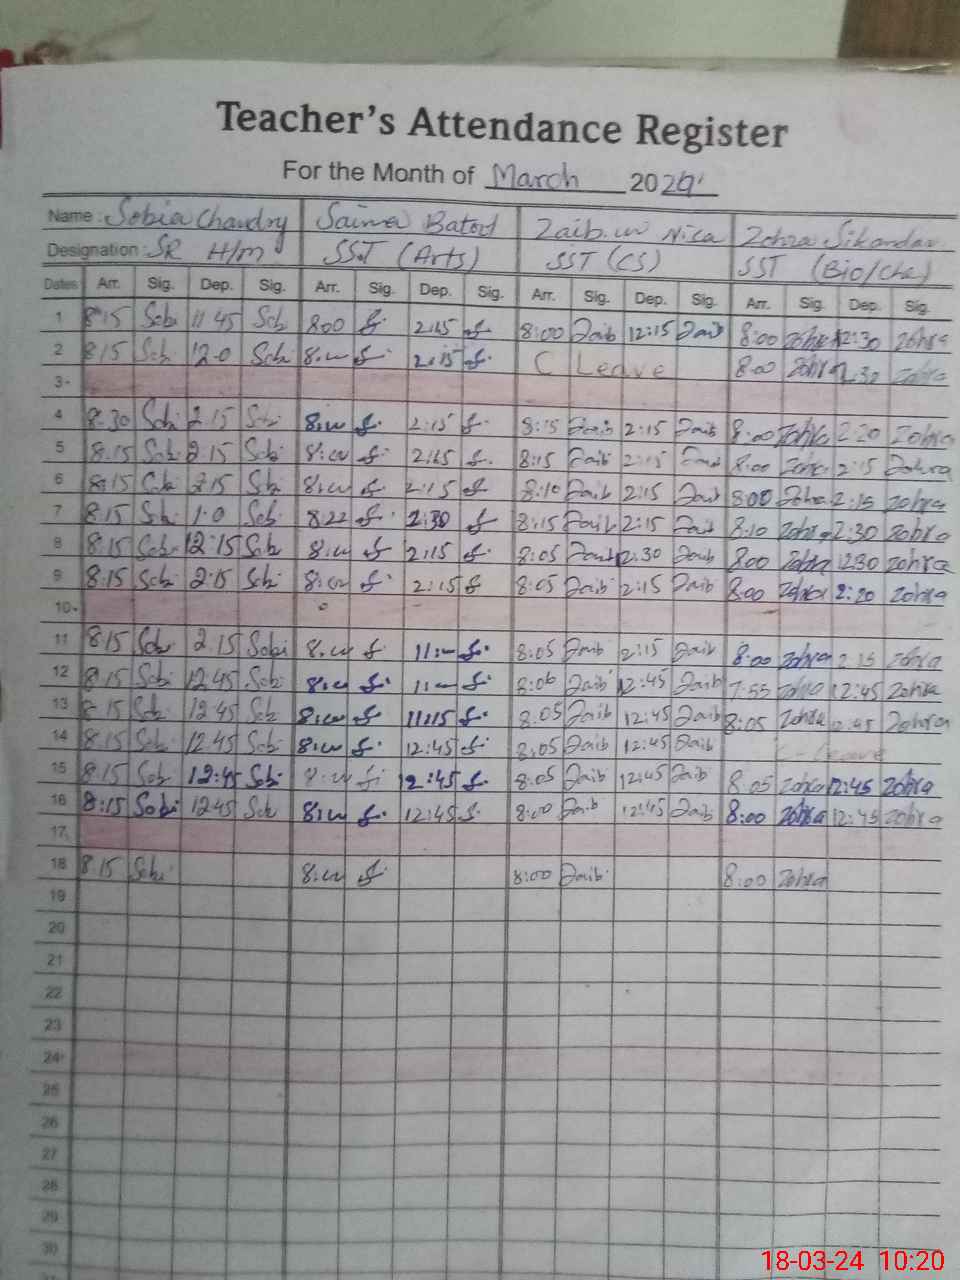 Teacher's Attendance Register
For the Month of March 2024
Name : Sobia Chaudry Saima Batool Zaib.un Nisa Zohra Sikandar
Designation : SR H/m SST (Arts) SST (CS) SST (Bio/Che)
Dates Arr. Sig. Dep. Sig. Arr. Sig. Dep. Sig. Arr. Sig. Dep. Sig. Arr. Sig. Dep. Sig.
1 8:15 Sobi 11 45 Sob 800 2:15 8:00 Zaib 12:15 Zaib 8:00 Zohra 12:30 Zohra
2 8:15 Sob 12-0 Sob 2:15 C Leave 8:00 Zohra 2:30 Zohra
3
4 8:30 Sob 2:15 Sob 2:15 8:15 Zaib 2:15 Zaib 8:00 Zohra 2:20 Zohra
5 8:15 Sob 2:15 Sob 2:15 8:15 Zaib 2:15 Zaib 8:00 Zohra 2:15 Zohra
6 8:15 Sob 2:15 Sob 2:15 8:10 Zaib 2:15 Zaib 8:00 Zohra 2:15 Zohra
7 8:15 Sob 1:0 Sob 8:22 2:30 8:15 Zaib 2:15 Zaib 8:10 Zohra 2:30 Zohra
8 8:15 Sob 12:15 Sob 2:15 8:05 Zaib 12:30 Zaib 8:00 Zohra 12:30 Zohra
9 8:15 Sob 2:15 Sob 2:15 8:05 Zaib 2:15 Zaib 8:00 Zohra 2:20 Zohra
10
11 8:15 Sob 2:15 Sobi 8:05 Zaib 2:15 Zaib 8:00 Zohra 2:15 Zohra
12 8:15 Sob 12 45 Sob 8:06 Zaib 12:45 Zaib 7:55 Zohra 12:45 Zohra
13 8:15 Sob 12:45 Sob 11:15 8:05 Zaib 12:45 Zaib 8:05 Zohra 12:45 Zohra
14 8:15 Sob 12:45 Sob 12:45 8:05 Zaib 12:45 Zaib C-Leave
15 8:15 Sob 12:45 Sob 12:45 8:05 Zaib 12:45 Zaib 8:05 Zohra 12:45 Zohra
16 8:15 Sobi 12:45 Sob 12:45 8:00 Zaib 12:45 Zaib 8:00 Zohra 12:45 Zohra
17
18 8 15 Sob 8:00 Zaib 8:00 Zohra
19
20
21
22
23
24
25
26
27
28
29
30
18-03-24 10:20